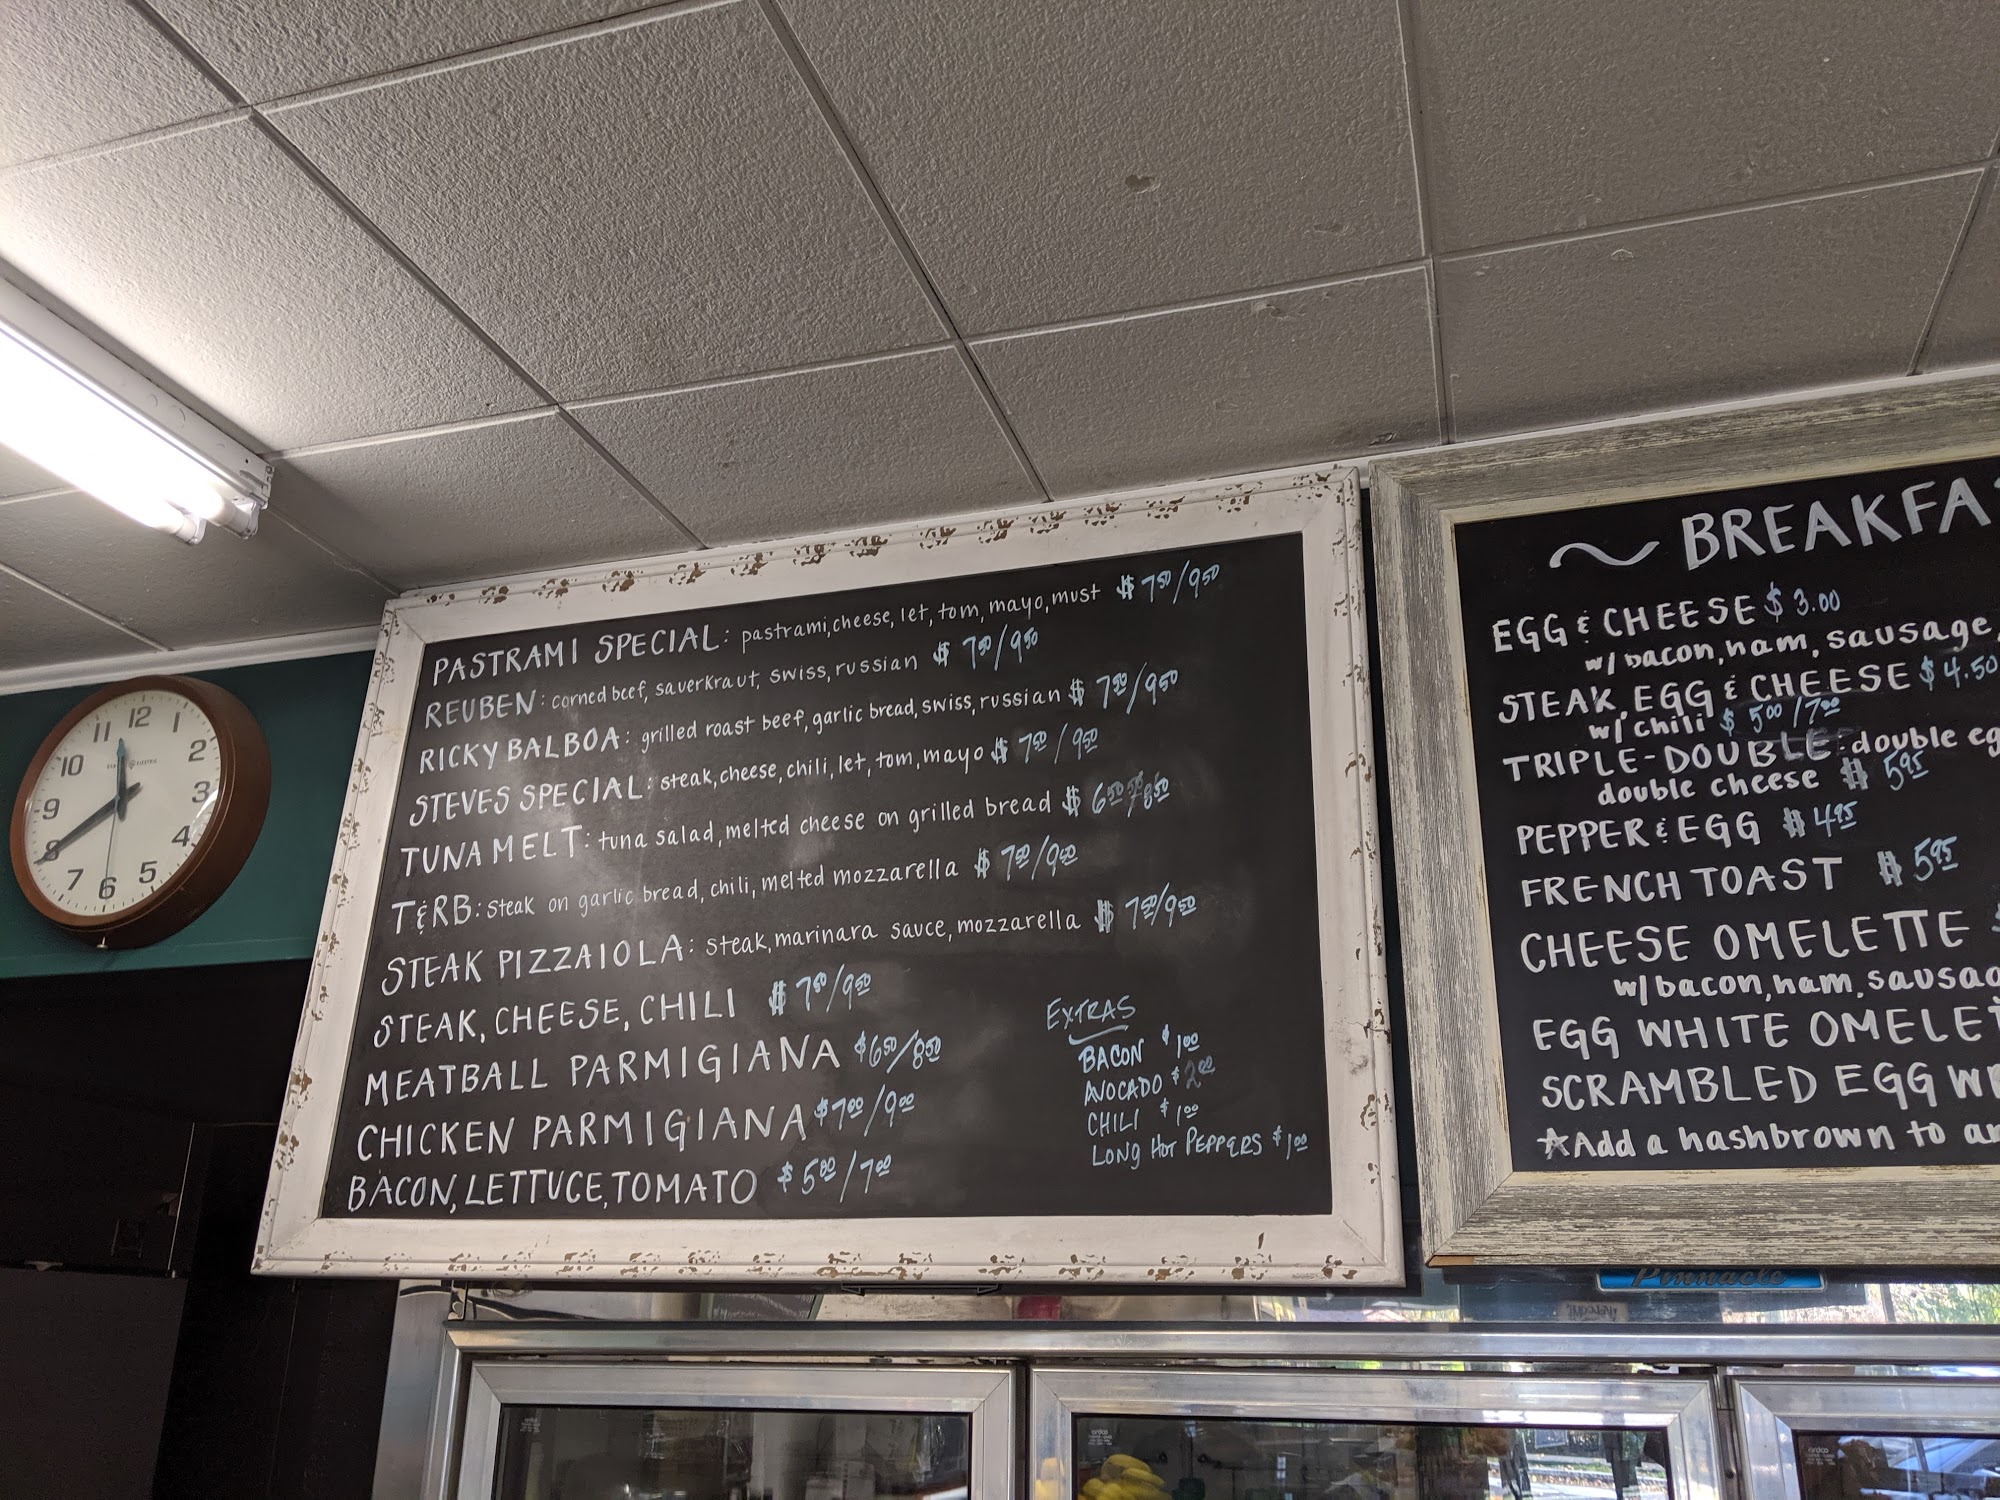 12
1
2
3
4
5
6
7
8
9
10
11
PASTRAMI SPECIAL: pastrami, cheese, let, tom, mayo, must $7.50/9.50
REUBEN: corned beef, sauerkraut, swiss, russian $7.50/9.50
RICKY BALBOA: grilled roast beef, garlic bread, swiss, russian $7.50/9.50
STEVES SPECIAL: steak, cheese, chili, let, tom, mayo $7.50/9.50
TUNA MELT: tuna salad, melted cheese on grilled bread $6.50/8.50
T&RB: steak on garlic bread, chili, melted mozzarella $7.50/9.50
STEAK PIZZAIOLA: steak, marinara sauce, mozzarella $7.50/9.50
STEAK, CHEESE, CHILI $7.50/9.50
MEATBALL PARMIGIANA $6.50/8.50
CHICKEN PARMIGIANA $7.00/9.00
BACON, LETTUCE, TOMATO $5.00/7.00
EXTRAS
BACON $1.00
AVOCADO $2.00
CHILI $1.00
LONG HOT PEPPERS $1.00
~ BREAKFA
EGG & CHEESE $3.00
w/ bacon, ham, sausage,
STEAK, EGG & CHEESE $4.50
w/ chili $5.00/7.00
TRIPLE-DOUBLE: double eg
double cheese $5.95
PEPPER & EGG $4.95
FRENCH TOAST $5.95
CHEESE OMELETTE $
w/ bacon, ham, sausag
EGG WHITE OMELET
SCRAMBLED EGG WR
☆Add a hashbrown to an
Pinnacle